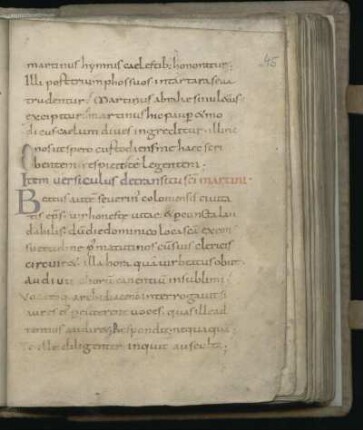 45
martinus hymnis caelestib; honoratur;
Illi post triumphos suos intartara seua
trudentur; Martinus abrahe sinu laetus
excipitur; martinus hic pauper & mo
dicus caelum diues ingreditur. illinc
nos ut spero custodiens me haec scri
bentem respicit te legentem;
Item uersiculus detransitu sci martini.
Beatus aut seuerin' colonensis ciuita
tis eps. uir honeste uitae & per cuncta lau
dabilis. dum die dominico loca sca ex con
suetudine p matutinos cursus clericis
circuiret. illa hora qua uir beatus obiit.
audiuit chorum canentium in sublimi.
Vocatoq; archidiacono interrogauit si
aures eius percuterent uoces. quas ille ad
tentus audiret; Respondit nequaquam
Tu ille diligenter inquit ausculta;